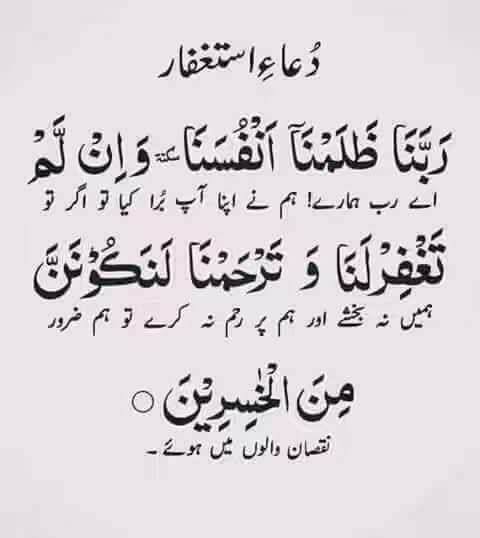 دُعاءِ استغفار
رَبَّنَا ظَلَمْنَاۤ اَنْفُسَنَا ٚسكتة وَ اِنْ لَّمْ
اے رب ہمارے! ہم نے اپنا آپ بُرا کیا تو اگر تو
تَغْفِرْلَنَا وَ تَرْحَمْنَا لَنَكُوْنَنَّ
ہمیں نہ بخشے اور ہم پر رحم نہ کرے تو ہم ضرور
مِنَ الْخٰسِرِيْنَ ○
نقصان والوں میں ہوئے ۔